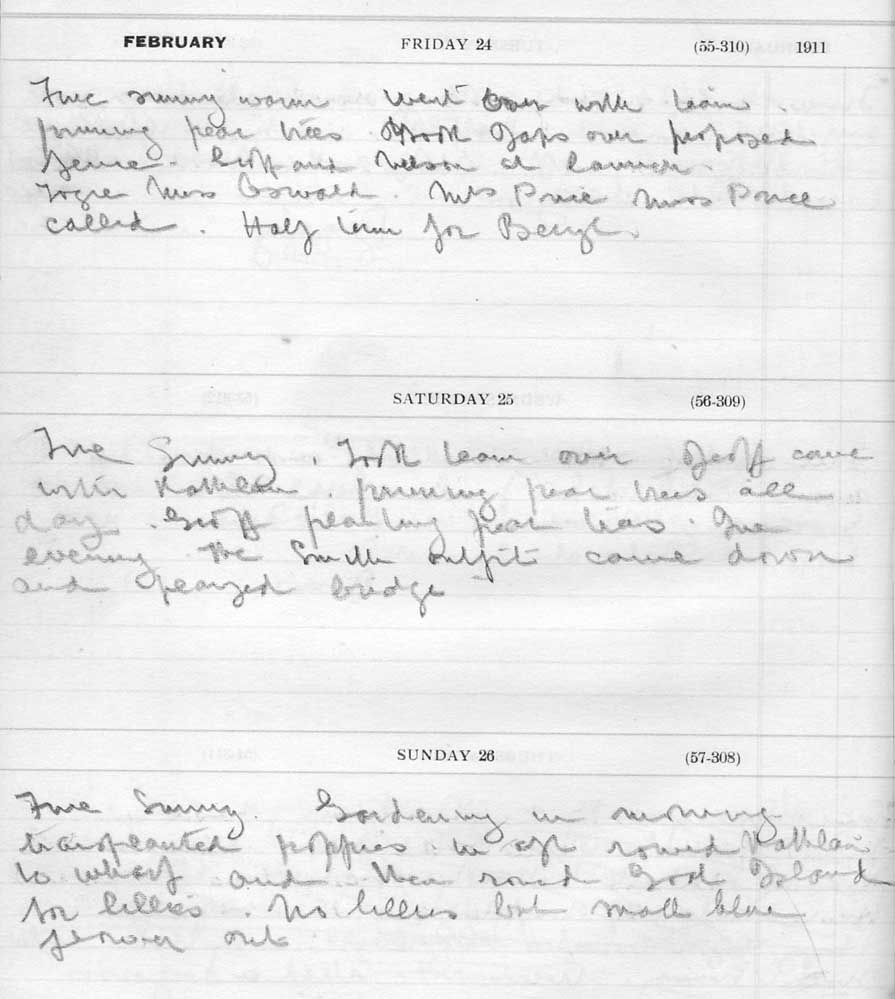 FEBRUARY FRIDAY 24 (55-310) 1911
Fine sunny warm Went over with team
pruning pear trees. Took Japs over proposed
fence. Geoff and Nelson at
Miss Oswald. Mrs Price Miss Price
called. Half term for Beryl.
SATURDAY 25 (56-309)
Fine Sunny. Took team over Geoff came
with Kathleen. pruning pear trees all
day. Geoff planting pear trees. In
evening the Smith outfit came down
and played bridge
SUNDAY 26 (57-308)
Fine Sunny. Gardening in morning
transplanted poppies. in aft round Kathleen
to wharf and then round Goat Island
for lillies. No lillies but small blue
flower out